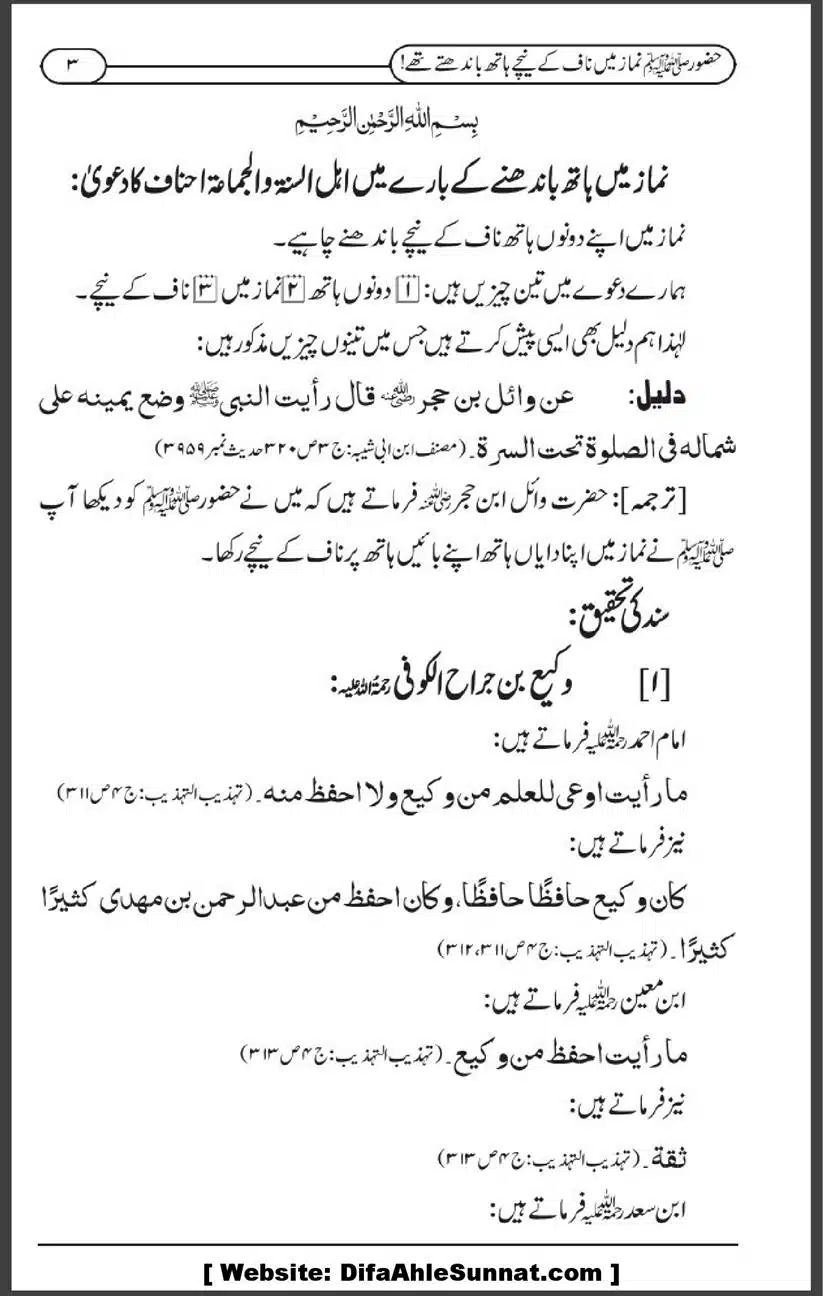 حضور ﷺ نماز میں ناف کے نیچے ہاتھ باندھتے تھے!
۳
بِسْمِ اللهِ الرَّحْمٰنِ الرَّحِيْمِ
نماز میں ہاتھ باندھنے کے بارے میں اہل السنۃ والجماعۃ احناف کا دعویٰ:
نماز میں اپنے دونوں ہاتھ ناف کے نیچے باندھنے چاہیے۔
ہمارے دعوے میں تین چیزیں ہیں: ۱ دونوں ہاتھ ۲ نماز میں ۳ ناف کے نیچے۔
لہٰذا ہم دلیل بھی ایسی پیش کرتے ہیں جس میں تینوں چیزیں مذکور ہیں:
دلیل: عن وائل بن حجر رضی اللہ عنہ قال رأیت النبی ﷺ وضع یمینہ علی
شمالہ فی الصلوۃ تحت السرۃ۔ (مصنف ابن ابی شیبہ: ج۳ ص۳۲۰ حدیث نمبر ۳۹۵۹)
[ترجمہ]: حضرت وائل ابن حجر رضی اللہ عنہ فرماتے ہیں کہ میں نے حضور ﷺ کو دیکھا آپ
ﷺ نے نماز میں اپنا دایاں ہاتھ اپنے بائیں ہاتھ پر ناف کے نیچے رکھا۔
سند کی تحقیق:
[۱] وکیع بن جراح الکوفی رحمۃ اللہ علیہ:
امام احمد رحمۃ اللہ علیہ فرماتے ہیں:
ما رأیت اوعی للعلم من وکیع ولا احفظ منہ۔ (تہذیب التہذیب: ج۴ ص۳۱۱)
نیز فرماتے ہیں:
کان وکیع حافظًا حافظًا، وکان احفظ من عبدالرحمن بن مھدی کثیرًا
کثیرًا۔ (تہذیب التہذیب: ج۴ ص۳۱۱،۳۱۲)
ابن معین رحمۃ اللہ علیہ فرماتے ہیں:
ما رأیت احفظ من وکیع۔ (تہذیب التہذیب: ج۴ ص۳۱۳)
نیز فرماتے ہیں:
ثقة۔ (تہذیب التہذیب: ج۴ ص۳۱۳)
ابن سعد رحمۃ اللہ علیہ فرماتے ہیں:
[ Website: DifaAhleSunnat.com ]